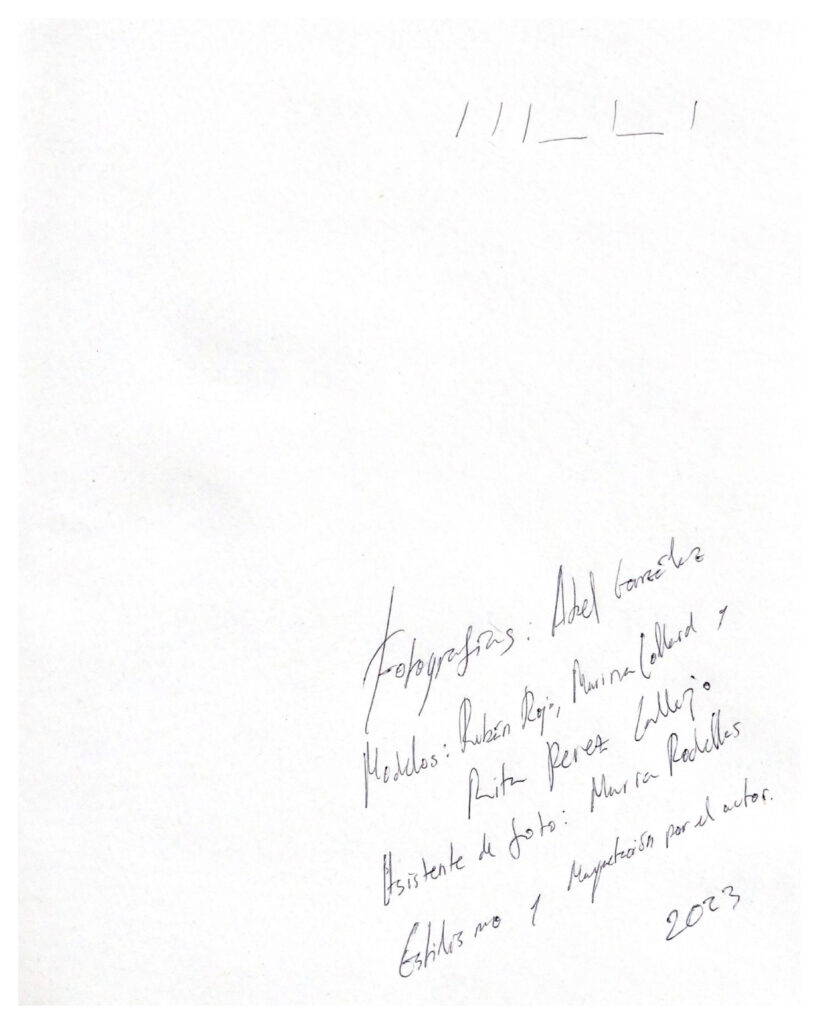 Fotografías: Abel González
Modelos: Rubén Rojo, Marina Collard y
Rita Perez Callejo
Asistente de foto: María Rodellas
Estilismo y Maquetación por el actor.
2023